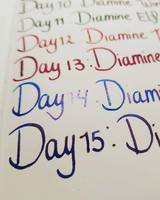 Day 10 Diamine
Day 11 Diamine
Day 12 Diamine
Day 13: Diamine
Day 14: Diami
Day 15: Di